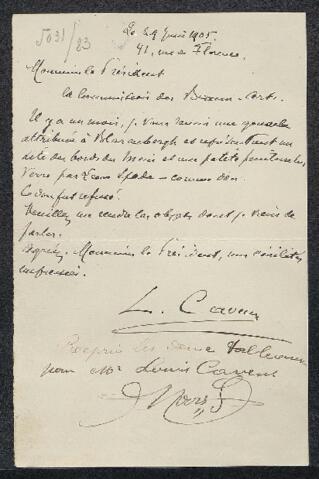 5031/23
Le 29 1905.
41, rue de Florence
Monsieur le Président
la Commission des Beaux-Arts.
Il y a un mois, j. vous une gouache
attribuée à Blarenberghe et représentant un
site des bords du Main et une petite peinture sur
verre par Léon Spode - comme don
Ce don fut refusé.
Veuillez me rendre les objets dont je viens de
parler.
Agréez, Monsieur le Président, mes civilités
empressées.
L. Caveur
Repris les deux tableaux
pour Mr Louis Caveur